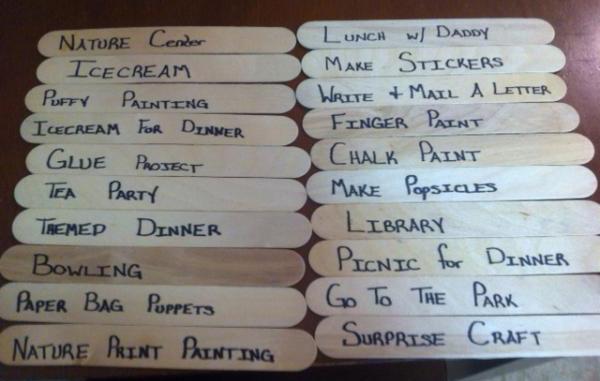 Nature Cender
Icecream
Puffy Painting
Icecream For Dinner
Glue Project
Tea Party
Themed Dinner
Bowling
Paper Bag Puppets
Nature Print Painting
Lunch w/ Daddy
Make Stickers
Write + Mail A Letter
Finger Paint
Chalk Paint
Make Popsicles
Library
Picnic for Dinner
Go To The Park
Surprise Craft